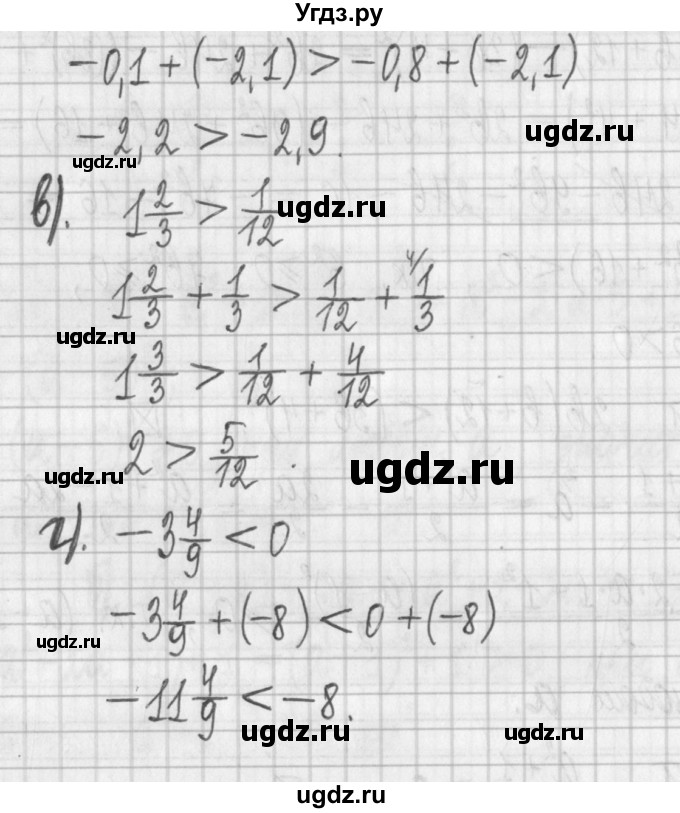 Угдз.ру
-0,1 + (-2,1) > -0,8 + (-2,1)
-2,2 > -2,9.
ugdz.ru
ugdz.ru
в). 1 2/3 > 1/12
ugdz.ru
1 2/3 + 1/3 > 1/12 + 4/ 1/3
ugdz.ru
1 3/3 > 1/12 + 4/12
2 > 5/12.
ugdz.ru
ugdz.ru
г). -3 4/9 < 0
-3 4/9 + (-8) < 0 + (-8)
ugdz.ru
ugdz.ru
-11 4/9 < -8.
ugdz.ru
ugdz.ru
ugdz.ru